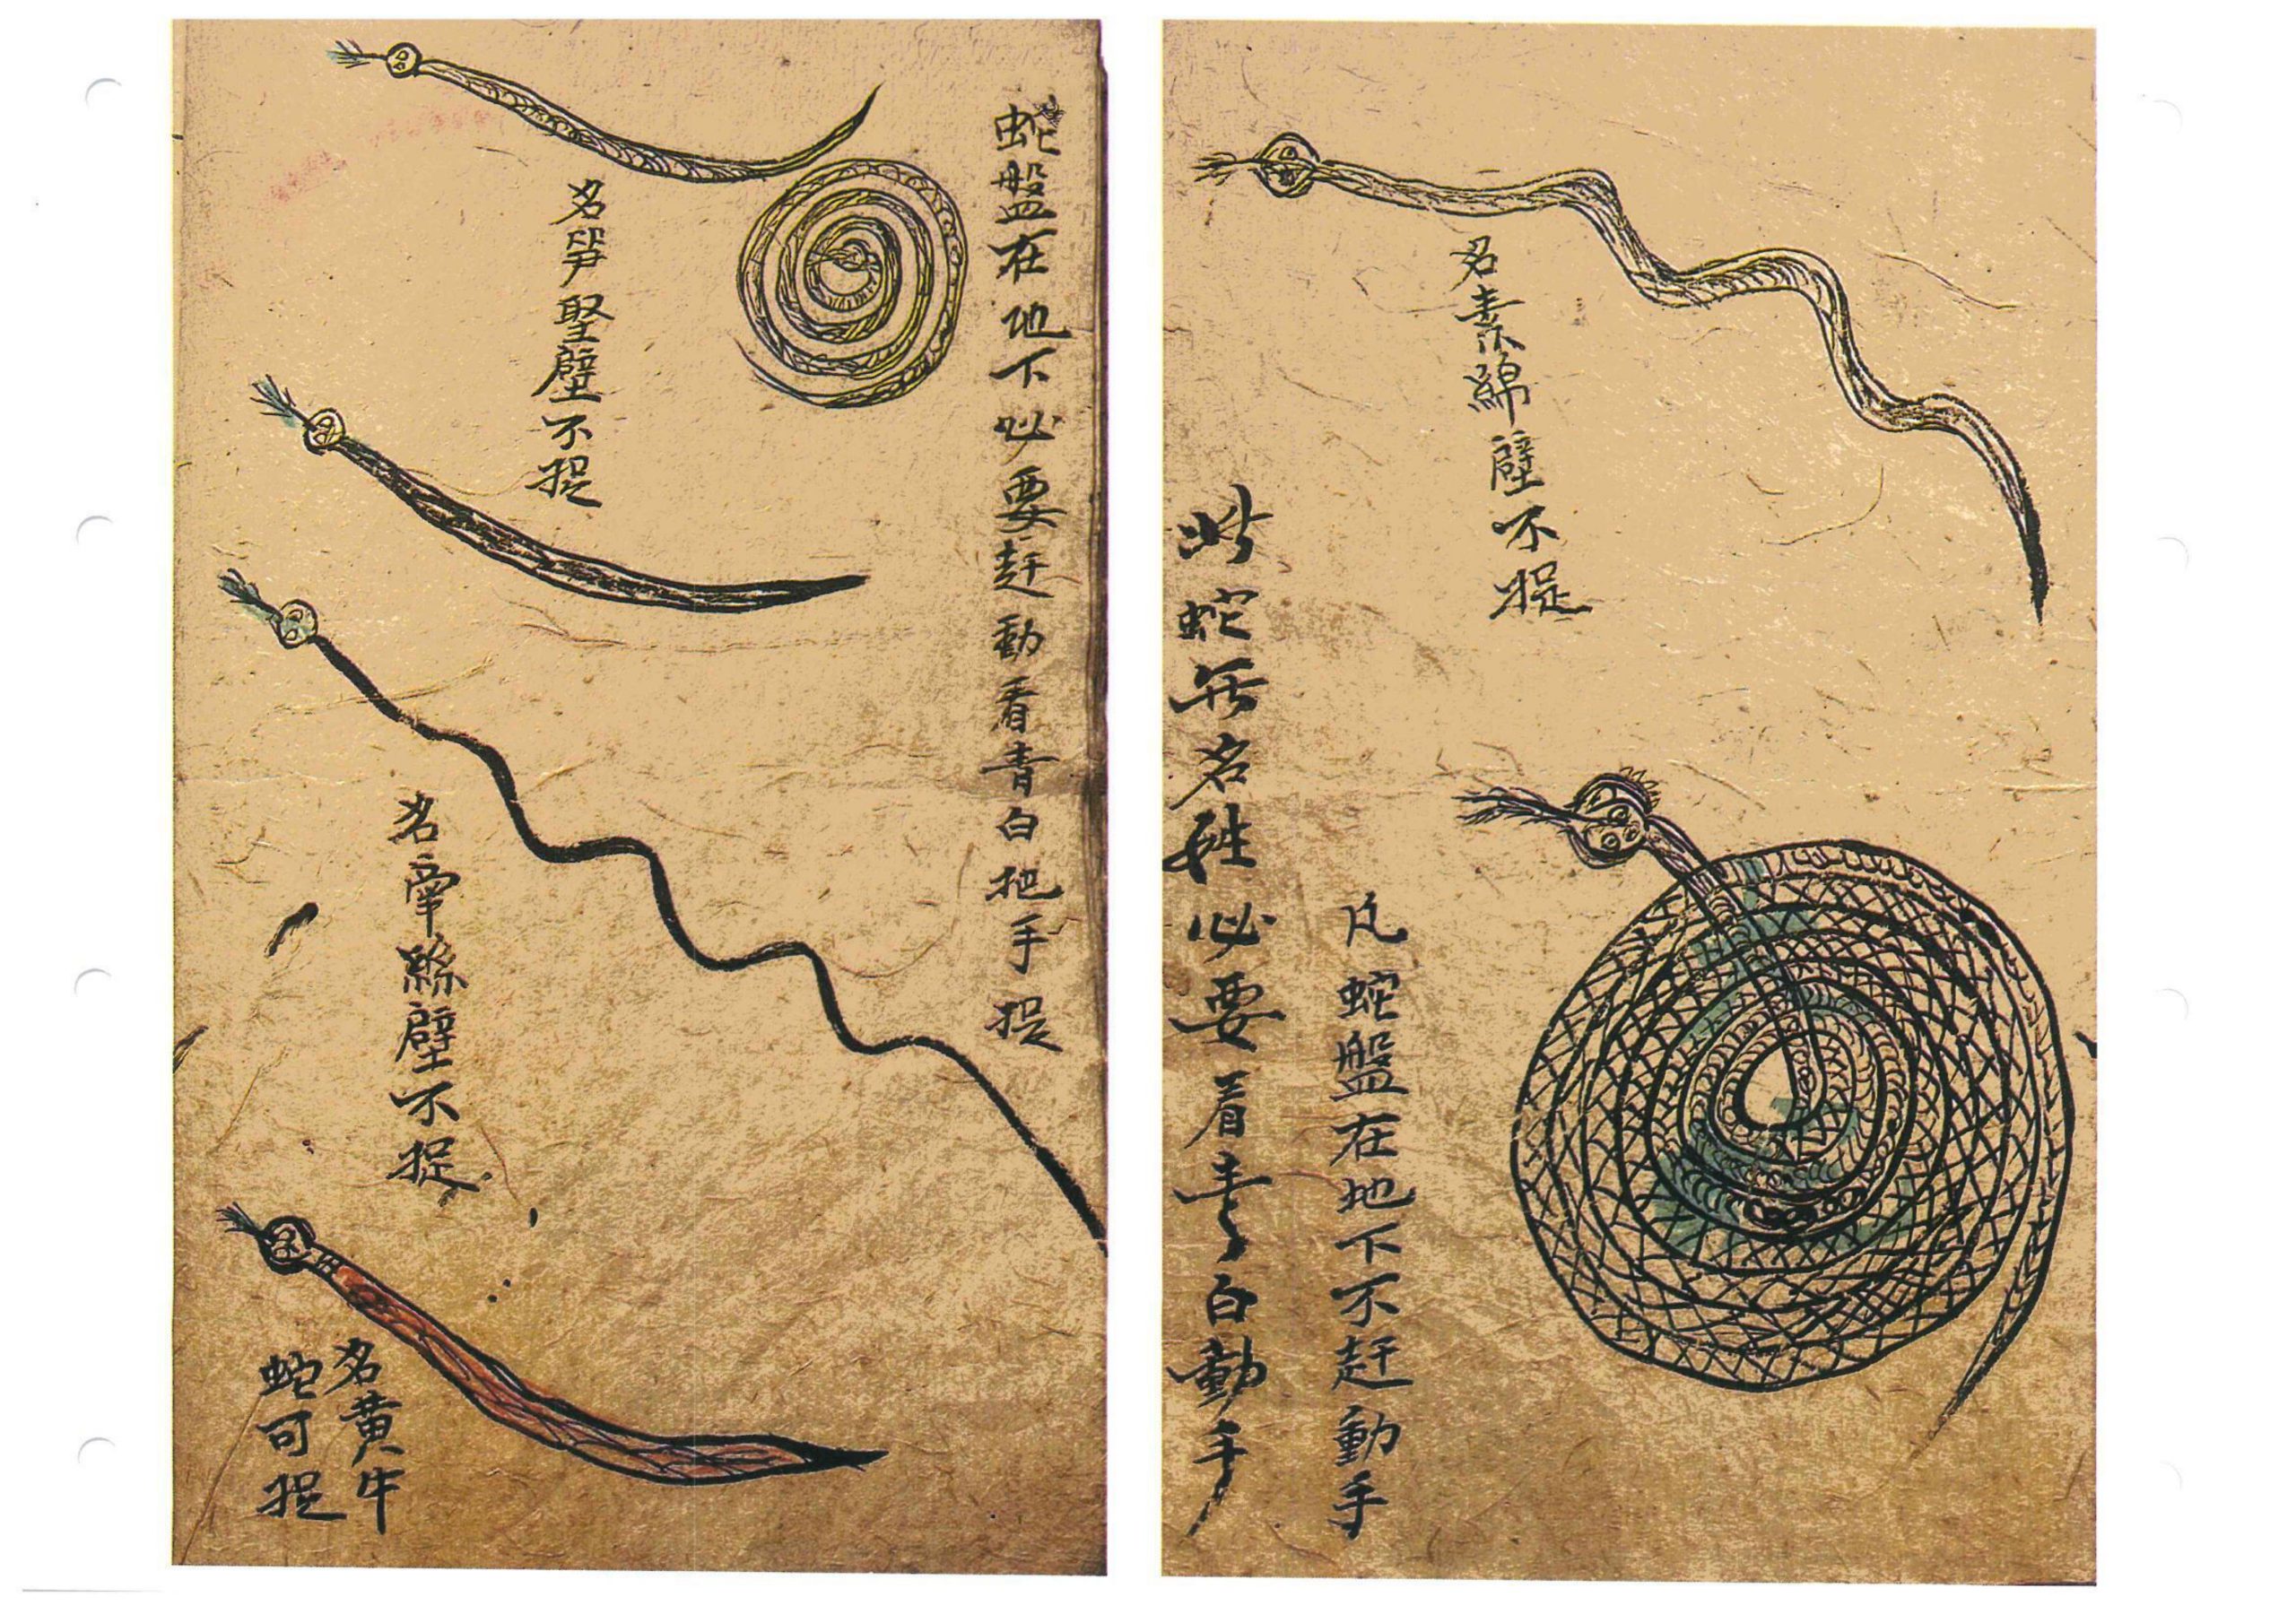 名素綿壁不捉
凡蛇盤在地下不赶動手
此蛇無名姓必要看青白動手
蛇盤在地下必要赶動看青白把手捉
名笋壁不捉
名牽絲壁不捉
名黄牛
蛇可捉